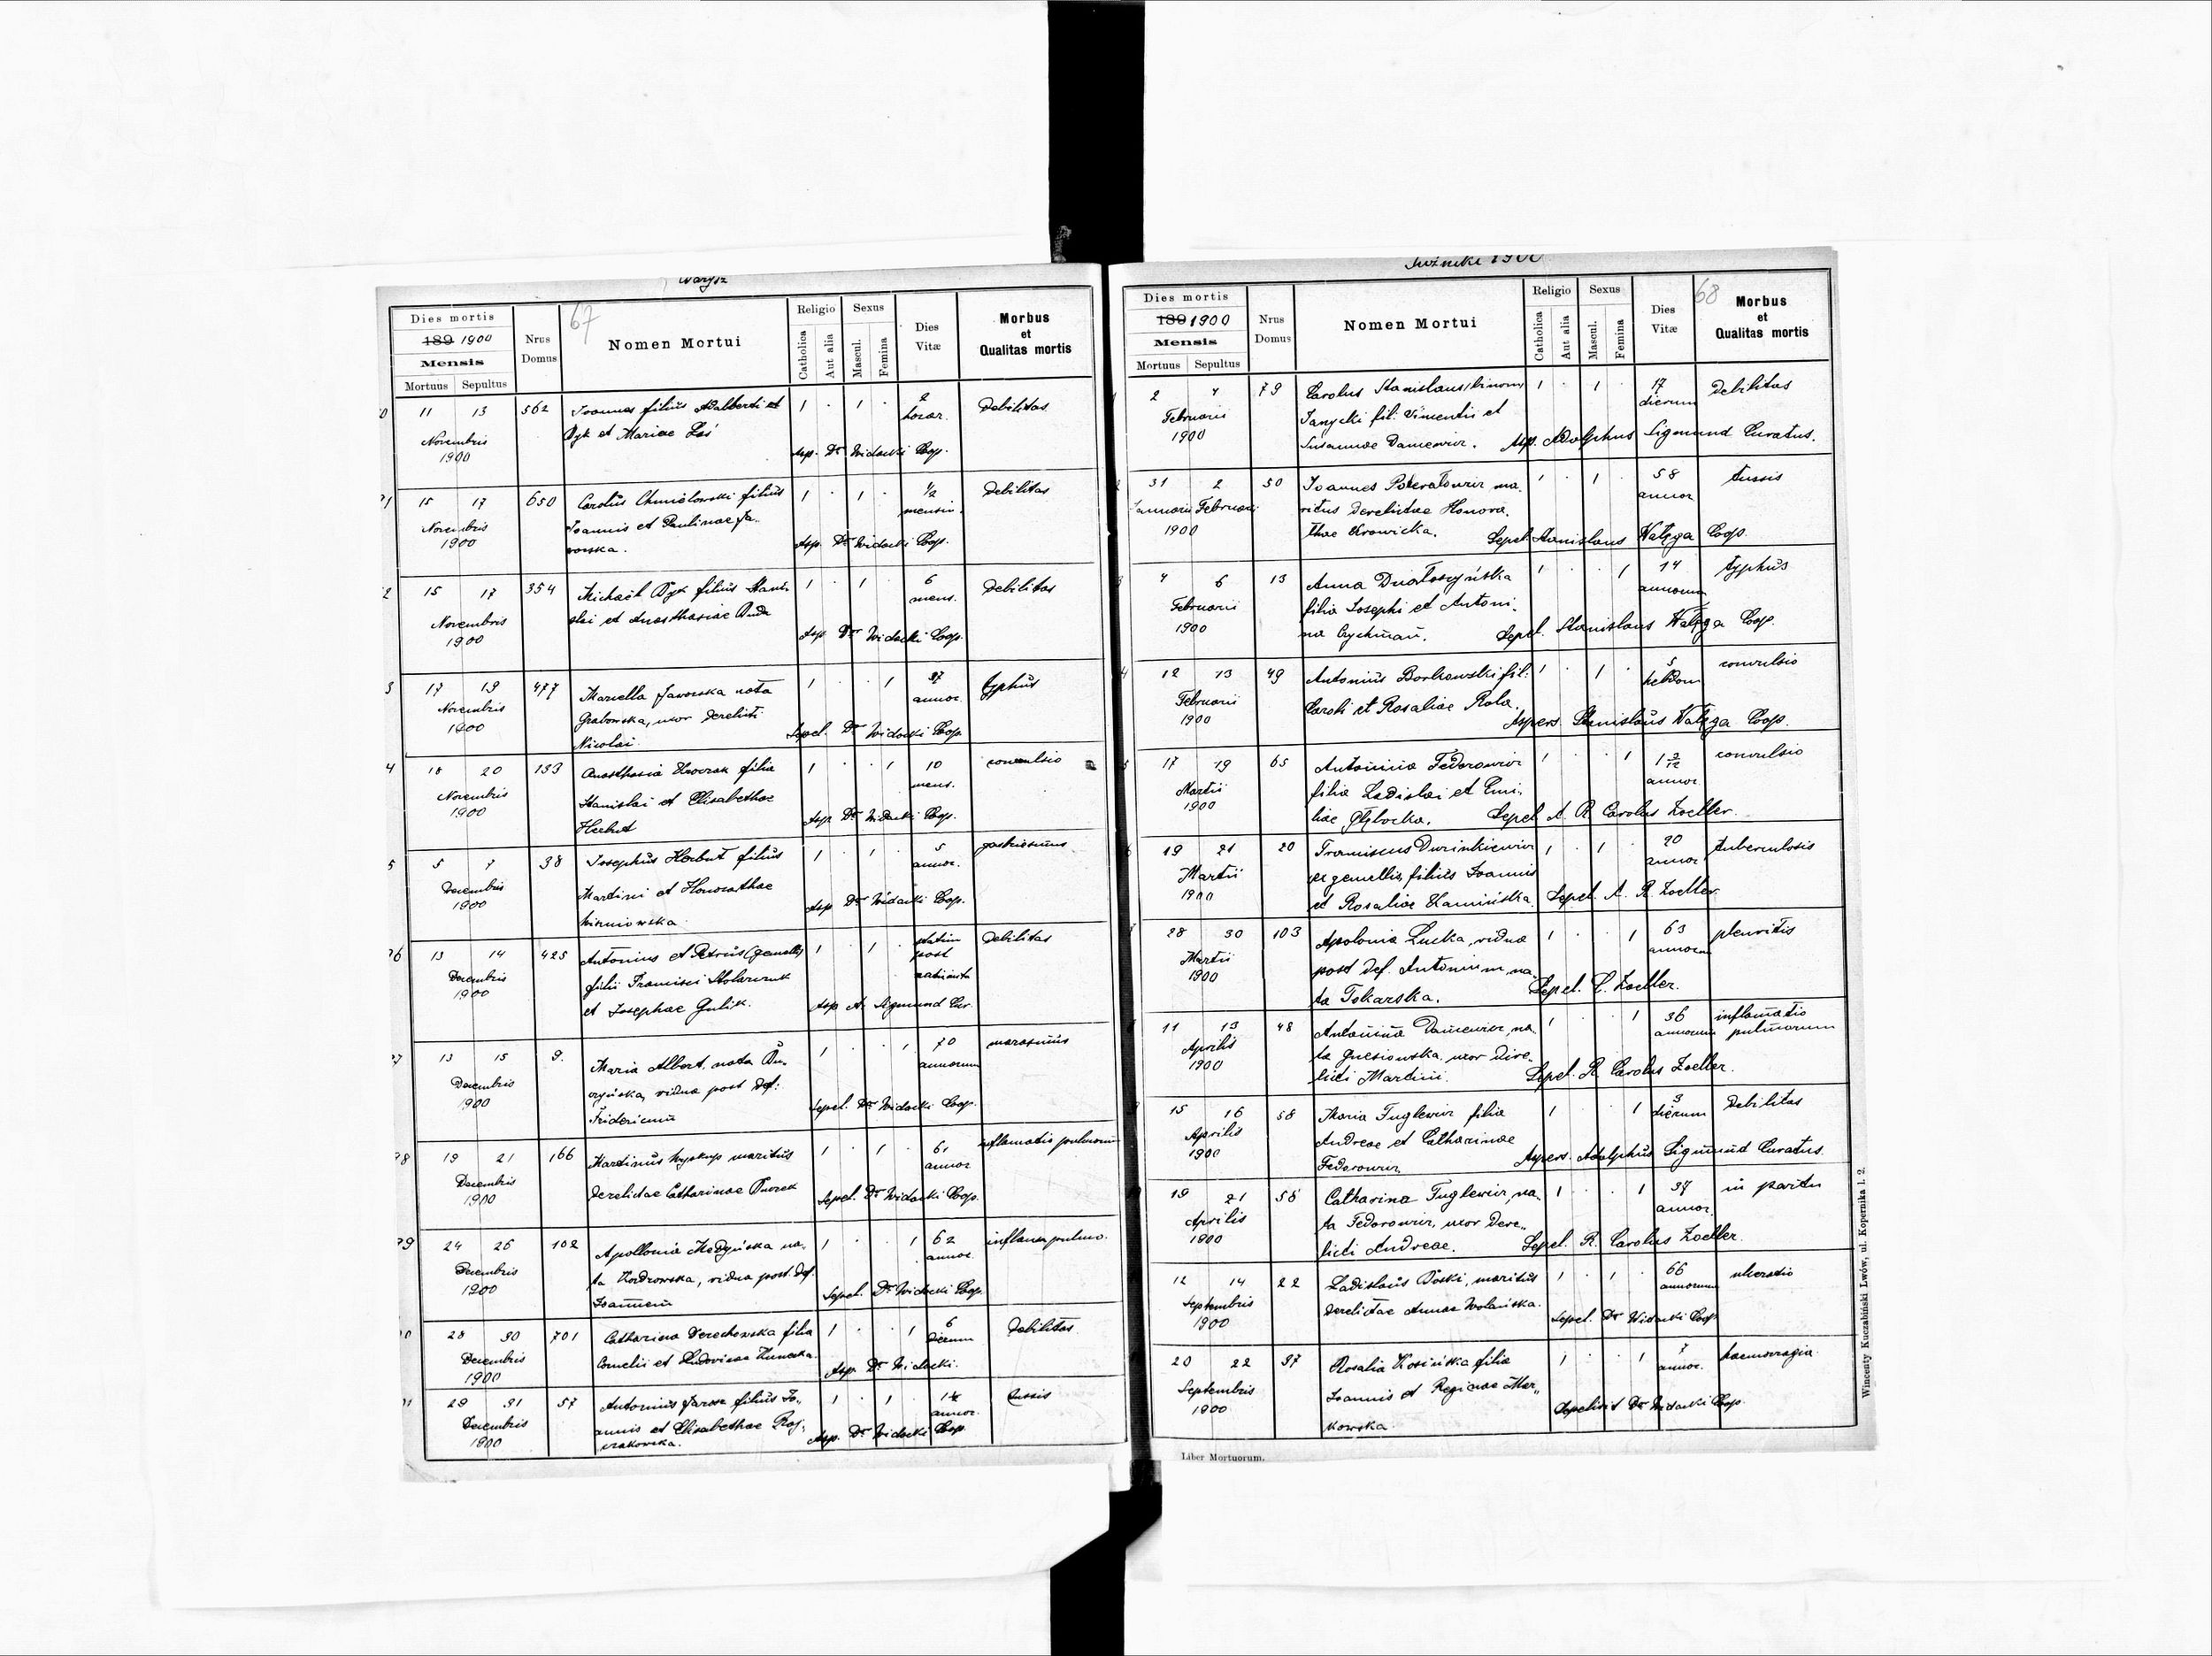 Narysz
Dies mortis
189 1900
Mensis
Mortuus Sepultus
Nrus Domus
67
Nomen Mortui
Religio
Catholica
Aut alia
Sexus
Mascul.
Femina
Dies Vitæ
Morbus et Qualitas mortis
11 13 562 Joannes filius Adalberti et 1 · 1 · 2 Debilitas
Novembris Dyk et Mariae Łoś horar.
1900 Asp. Dr Widacki Coop.
15 17 650 Carolus Chmielowski filius 1 · 1 · 1/2 Debilitas
Novembris Joannis et Paulinae Ja- mensis.
1900 worska. Asp. Dr Widacki Coop.
15 17 354 Michaël Dyk filius Stani- 1 · 1 · 6 Debilitas
Novembris slai et Anasthasiae Duda mens.
1900 Asp. Dr Widacki Coop.
17 19 477 Marcella Jaworska nata 1 · · 1 37 typhus
Novembris Grabowska, uxor derelicti annor.
1900 Nicolai. Sepel. Dr Widacki Coop.
18 20 133 Anasthasia filia 1 · · 1 10 convulsio
Novembris Stanislai et Elisabethae mens.
1900 Herbut Asp. Dr Widacki Coop.
5 7 38 Josephus Herbut filius 1 · 1 · 5
Decembris Martini et Honorathae annor.
1900 Wiszniowska Asp. Dr Widacki Coop.
13 14 425 Antonius et Petrus (gemelli) 1 · 1 · statim Debilitas
Decembris filii Francisci Stolarczuk post
1900 et Josephae Gulik. Asp. A. Sigmund Cur.
13 15 9. Maria Albert, nata 1 · · 1 70 marasmus
Decembris vidua post def: annorum
1900 Fridericum Sepel. Dr Widacki Coop.
19 21 166 Martinus Wyskup maritus 1 · 1 · 61 inflamatio pulmonum
Decembris derelictae Catharinae annor
1900 Sepel. Dr Widacki Coop.
24 26 102 Apollonia Medyńska na- 1 · · 1 62 inflama pulmo.
Decembris ta Kodrowska, vidua post def. annor.
1900 Joannem Sepel. Dr Widacki Coop.
28 30 701 Catharina Derechowska filia 1 · · 1 6 Debilitas
Decembris Cornelii et Ludovicae dierum
1900 Asp. Dr Widacki.
29 31 57 Antonius Jarosz filius Jo- 1 · 1 · 14 tussis
Decembris annis et Elisabethae Raj- annor.
1900 czakowska. Asp. Dr Widacki Coop.
1900
Dies mortis
189 1900
Mensis
Mortuus Sepultus
Nrus Domus
Nomen Mortui
Religio
Catholica
Aut alia
Sexus
Mascul.
Femina
Dies Vitæ
68
Morbus et Qualitas mortis
2 4 79 Carolus Stanislaus (binom) 1 · 1 · 17 Debilitas
Februarii Janycki fil. Vincentii et dierum
1900 Susannae Dancewicz. Asp. Adolphus Sigmund Curatus.
31 2 50 Joannes ma- 1 · 1 · 58 tussis
Januarii Februarii ritus derelictae Honora- annor
1900 thae Krowicka. Sepel. Stanislaus Wałęga Coop.
4 6 13 Anna 1 · · 1 14 typhus
Februarii filia Josephi et Antoni- annorum
1900 na Sepel. Stanislaus Wałęga Coop.
12 13 49 Antonius Borkowski fil: 1 · 1 · 5 convulsio
Februarii Caroli et Rosaliae Rola. hebdom
1900 Aspers. Stanislaus Wałęga Coop.
17 19 65 Antonina Fedorowicz 1 · · 1 1 2/12 convulsio
Martii filia Ladislai et Emi- annor.
1900 liae Głębocka. Sepel. A. R. Carolus Zoeller.
19 21 20 Franciscus 1 · 1 · 20 tuberculosis
Martii ex gemellis, filius Joannis annor
1900 et Rosaliae Kamińska. Sepel. A. R. Zoeller.
28 30 103 Apolonia Lucka, vidua 1 · · 1 63 pleuritis
Martii post def. Antonium, na- annorum
1900 ta Tokarska. Sepel. C. Zoeller.
11 13 48 Antonina Dancewicz, na- 1 · · 1 36 inflamatio
Aprilis ta uxor dere- annorum pulmorum
1900 licti Martini. Sepel. R. Carolus Zoeller.
15 16 58 Maria Tuglewicz filia 1 · · 1 3 Debilitas
Aprilis Andreae et Catharinae dierum
1900 Fedorowicz Aspers. Adolphus Sigmund Curatus.
19 21 58 Catharina Tuglewicz, na- 1 · · 1 37 in partu
Aprilis ta Fedorowicz, uxor dere- annor.
1900 licti Andreae. Sepel. R. Carolus Zoeller.
12 14 22 Ladislaus maritus 1 · 1 · 66 ulceratio
Septembris derelictae Annae Wolańska. annorum
1900 Sepel. Dr Widacki Coop.
20 22 97 Rosalia Kosińska filia 1 · · 1 7 haemoragia
Septembris Joannis et Reginae Mar- annor.
1900 kowska. Sepelivit Dr Widacki Coop.
Liber Mortuorum.
Wincenty Kuczabiński Lwów, ul. Kopernika l. 2.